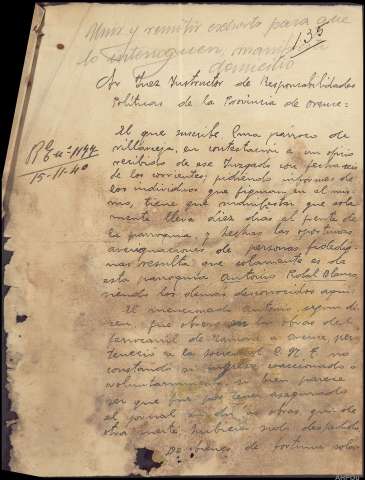 Unir y remitir exhorto para que
lo interroguen,
domicilio
135
Sr Juez Instructor de Responsabilidades
Políticas de la Provincia de Orense:
El que suscribe, Cura párroco de
en contestación a un oficio
recibido de ese Juzgado con fecha seis
de los corrientes, pidiendo informes de
los individuos que figuran en el mis-
mo, tiene que manifestar que sola-
mente lleva diez días al frente de
la parroquia, y hechas las oportunas
averiguaciones de personas fidedig-
nas resulta que solamente es de
esta parroquia Antonio Blanco
siendo los demás desconocidos aquí.
El mencionado Antonio, según di-
cen, fué obrero en las obras del
ferrocarril de Zamora a Orense, per-
teneció a la sociedad C.N.T. no
constando si ingresó coaccionado o
voluntariamente, si bien parece
ser que fué por tener asegurado
el jornal en las obras, que de
otra suerte hubiera sido despedido
De bienes de fortuna solo
15-11-40
AHPOu